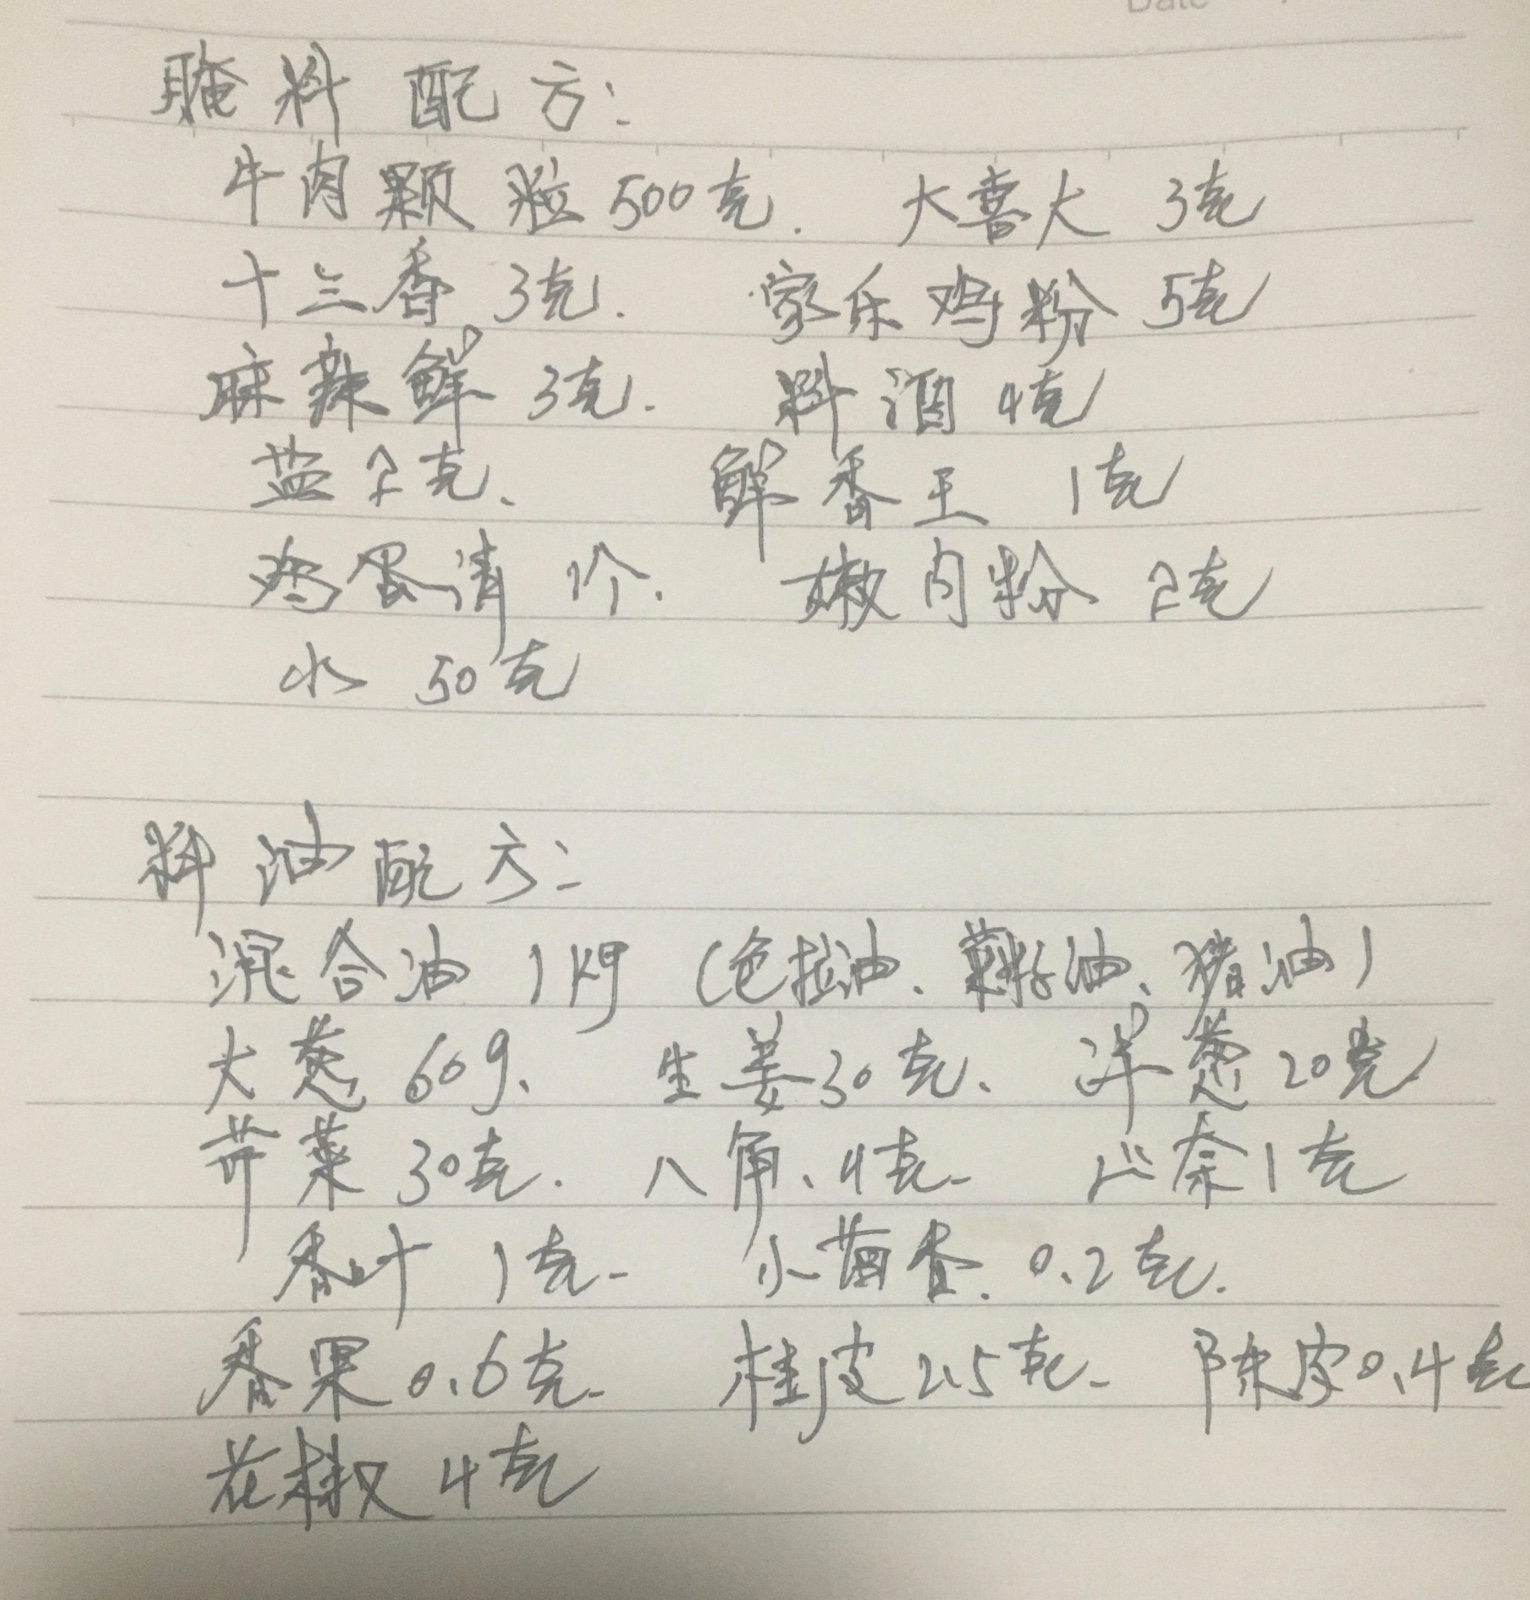 Date
腌料配方:
牛肉颗粒500克. 大喜大 3克
十三香 3克. 家乐鸡粉 5克
麻辣鲜 3克. 料酒 4克
盐 2克、 鲜香王 1克
鸡蛋清 1个. 嫩肉粉 2克
水 50克
料油配方:
混合油 1kg (色拉油、菜籽油、猪油)
大葱 60g、 生姜30克、 洋葱20克
芹菜 30克. 八角、4克. 山奈1克
香叶 1克. 小茴香. 0.2克.
香果0.6克. 桂皮2.5克. 陈皮0.4克
花椒 4克